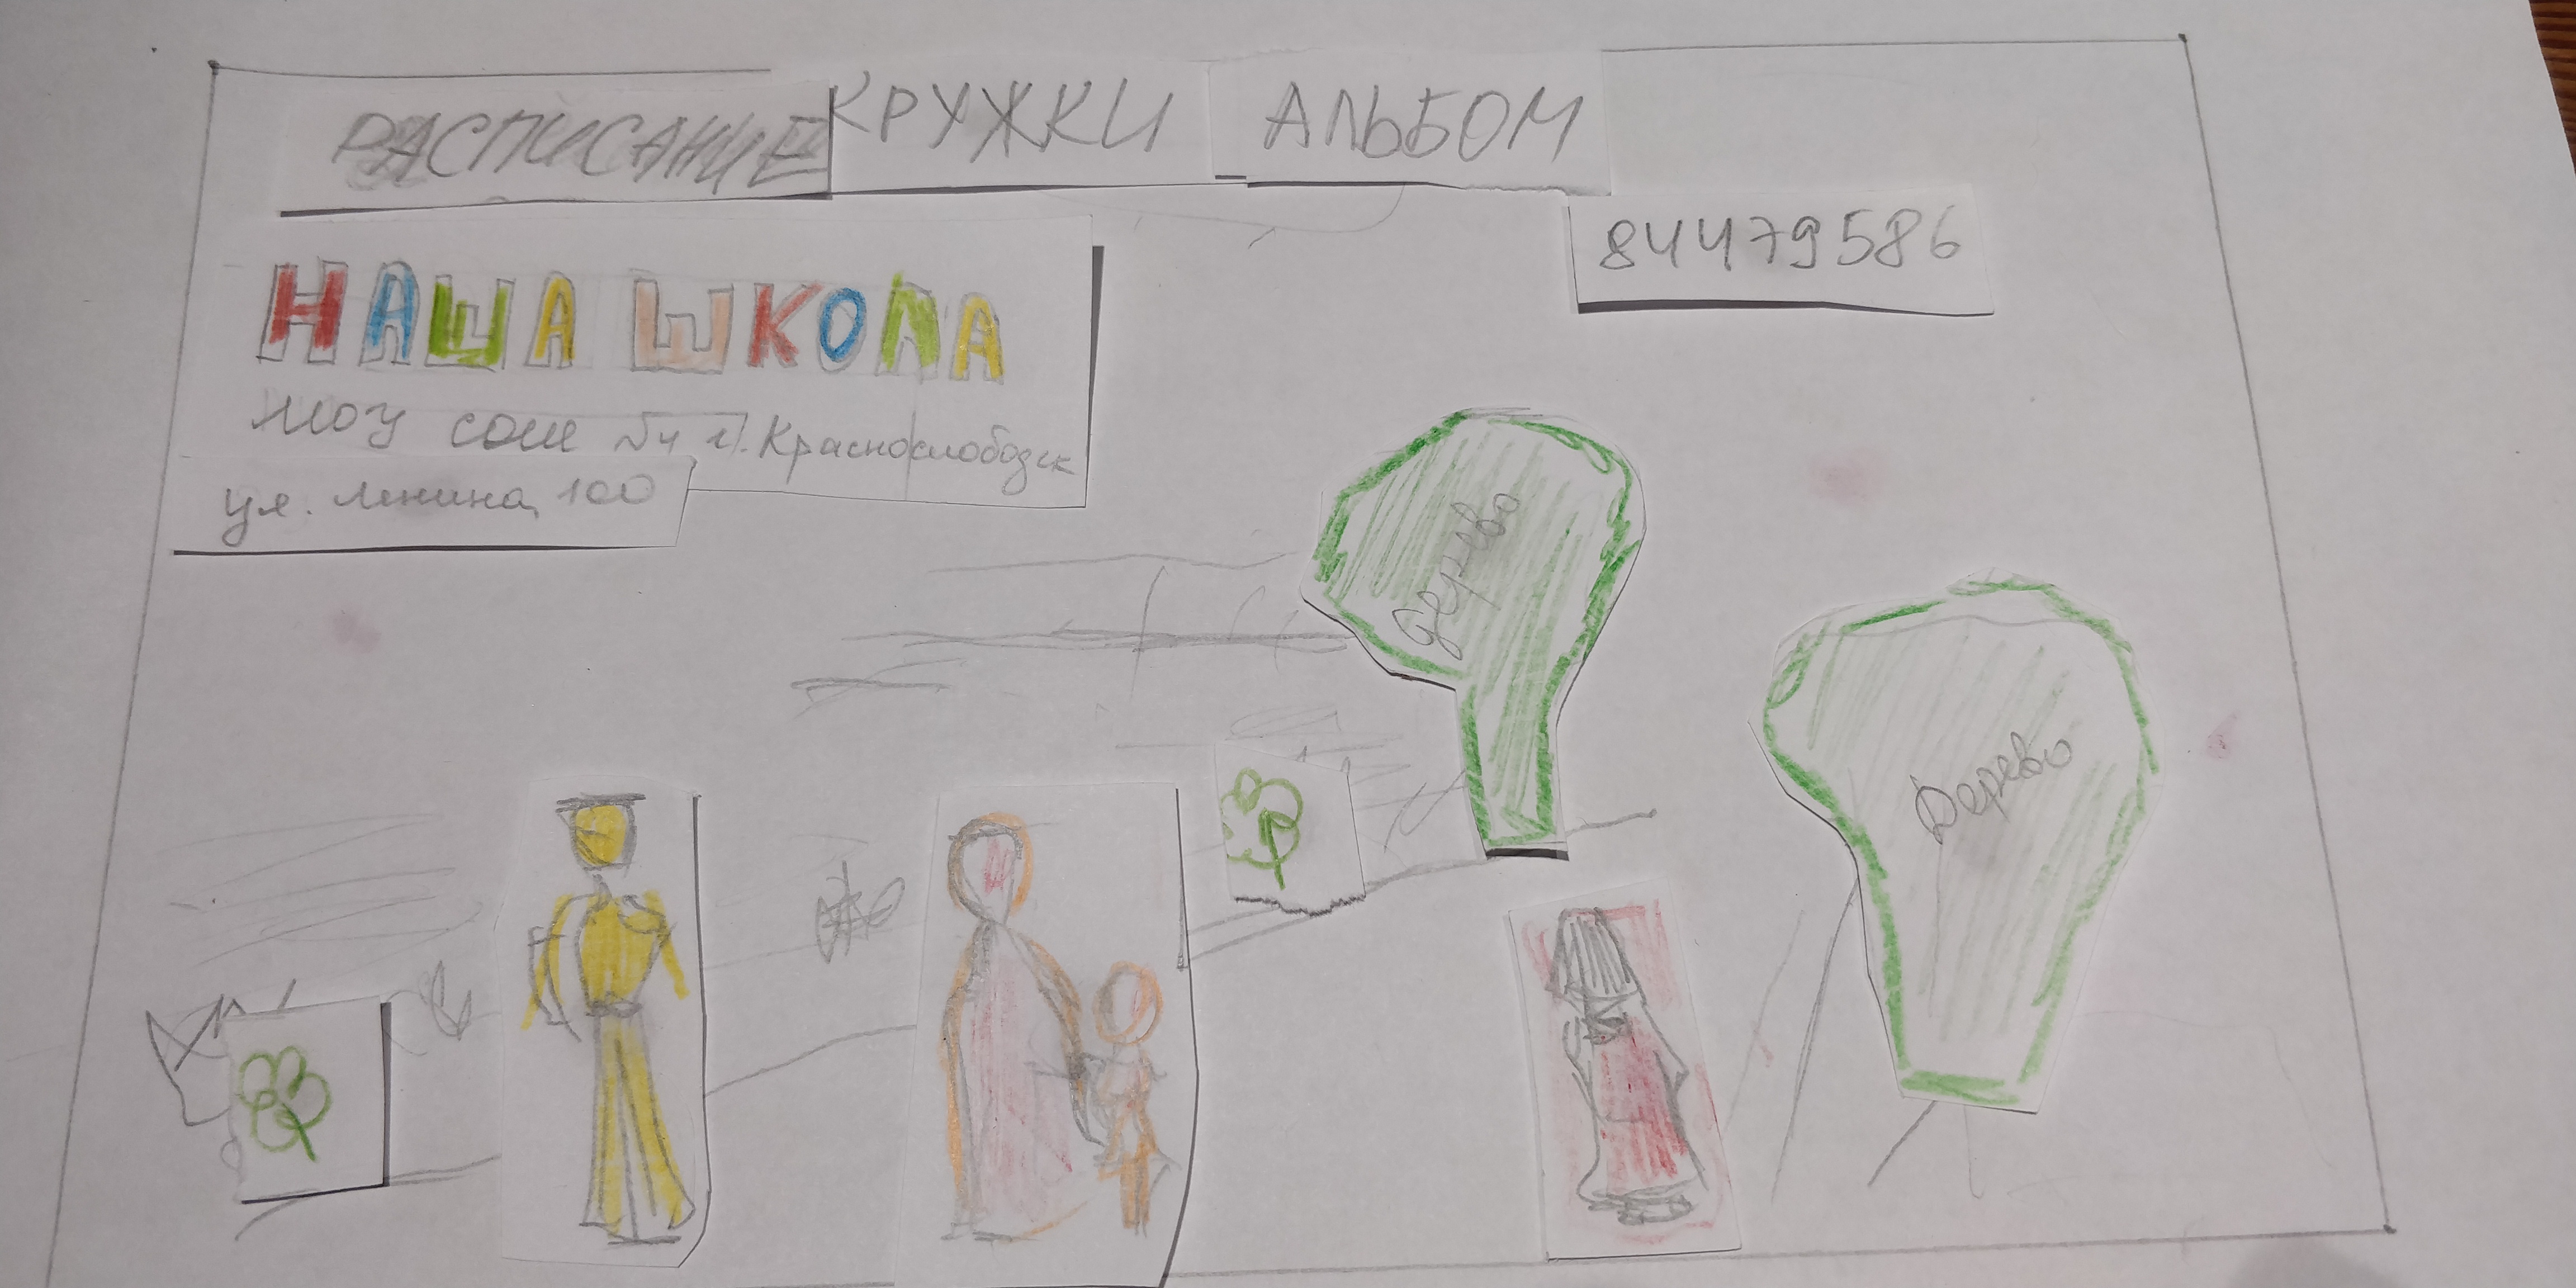 РАСПИСАНИЕ КРУЖКИ АЛЬБОМ
84479586
НАША ШКОЛА
МОУ СОШ №4 г. Краснослободск
ул. Ленина, 100
дерево
Дерево